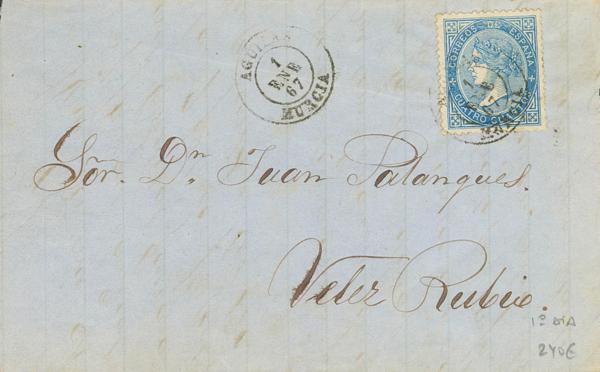 AGUILAS
1
ENE
67
MURCIA
CORREOS DE ESPAÑA
CUATRO CUARTOS
MURCIA
Sõr. Dn Juan Palanques.
Velez Rubio.
1º DIA
240€